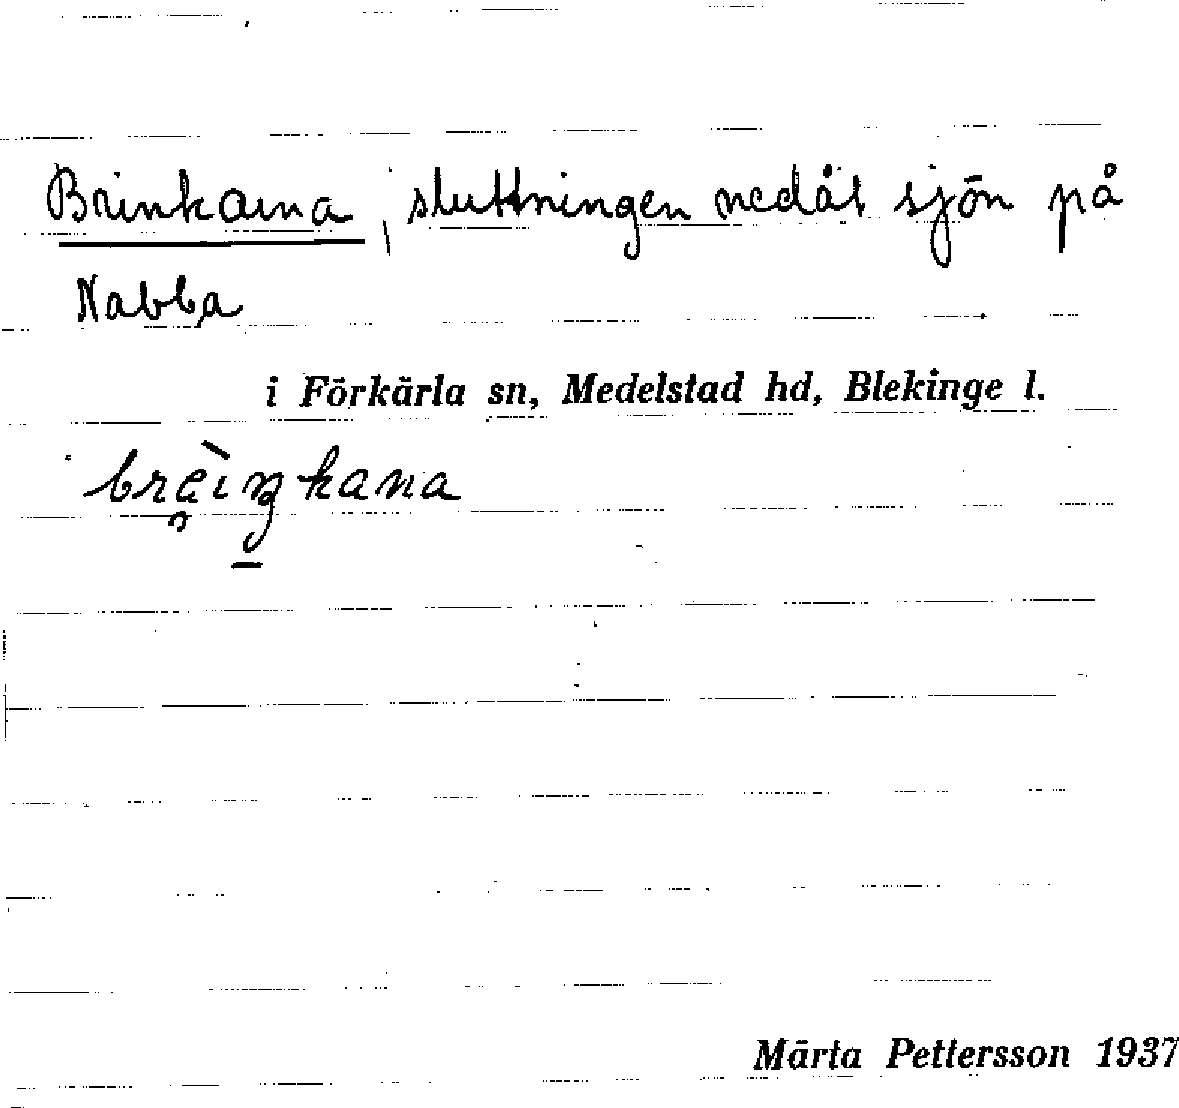 Brinkarna, sluttningen nedåt sjön på
Nabba
i Förkärla sn, Medelstad hd, Blekinge l.
Märta Pettersson 1937